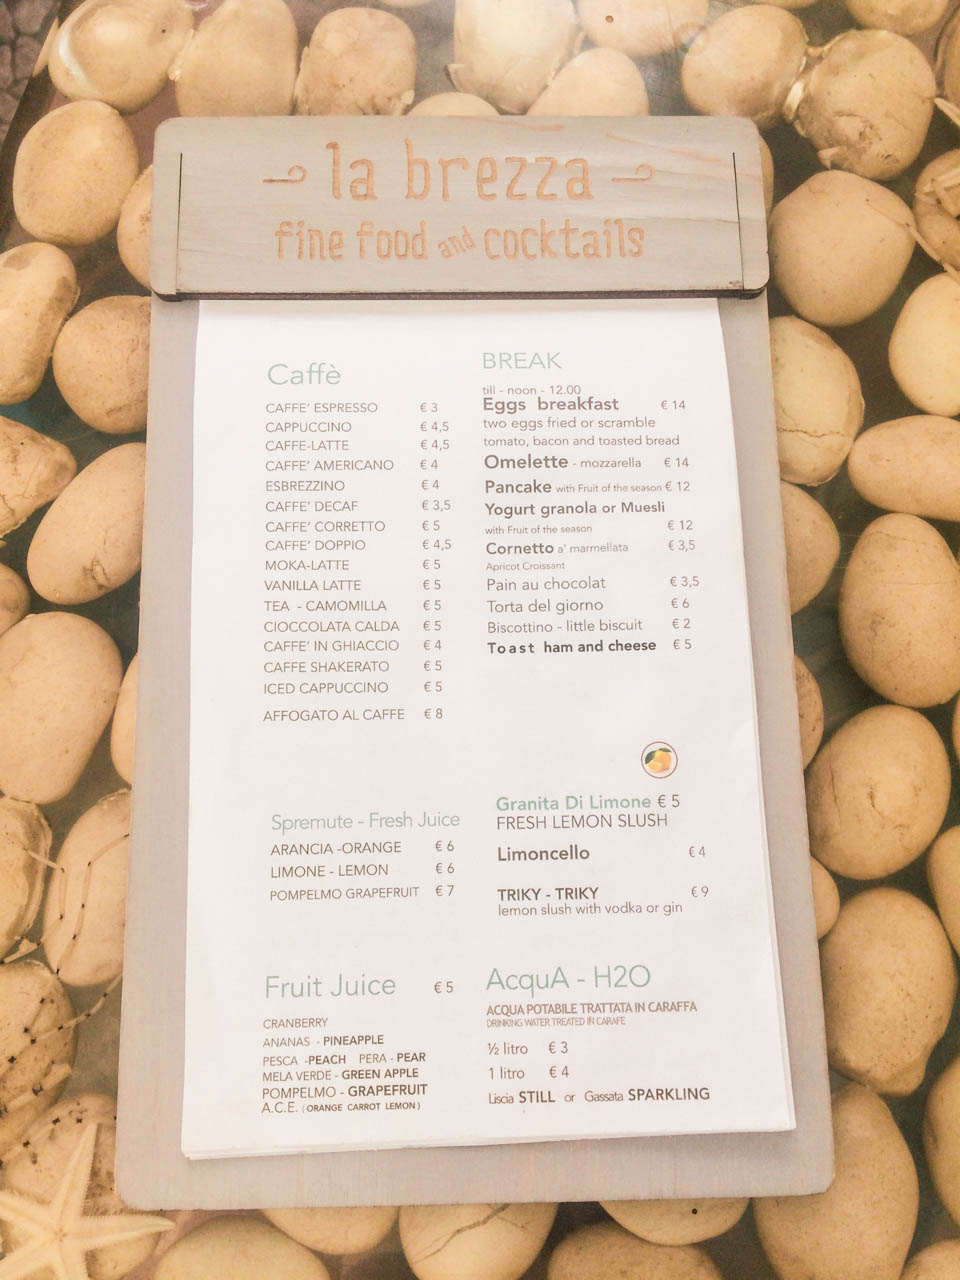 la brezza
fine food and cocktails
Caffè
CAFFE' ESPRESSO € 3
CAPPUCCINO € 4,5
CAFFE-LATTE € 4,5
CAFFE' AMERICANO € 4
ESBREZZINO € 4
CAFFE' DECAF € 3,5
CAFFE' CORRETTO € 5
CAFFE' DOPPIO € 4,5
MOKA-LATTE € 5
VANILLA LATTE € 5
TEA - CAMOMILLA € 5
CIOCCOLATA CALDA € 5
CAFFE' IN GHIACCIO € 4
CAFFE SHAKERATO € 5
ICED CAPPUCCINO € 5
AFFOGATO AL CAFFE € 8
BREAK
till - noon - 12.00
Eggs breakfast € 14
two eggs fried or scramble
tomato, bacon and toasted bread
Omelette - mozzarella € 14
Pancake with Fruit of the season € 12
Yogurt granola or Muesli
with Fruit of the season € 12
Cornetto a' marmellata € 3,5
Apricot Croissant
Pain au chocolat € 3,5
Torta del giorno € 6
Biscottino - little biscuit € 2
Toast ham and cheese € 5
Spremute - Fresh Juice
ARANCIA -ORANGE € 6
LIMONE - LEMON € 6
POMPELMO GRAPEFRUIT € 7
Granita Di Limone € 5
FRESH LEMON SLUSH
Limoncello € 4
TRIKY - TRIKY € 9
lemon slush with vodka or gin
Fruit Juice € 5
CRANBERRY
ANANAS - PINEAPPLE
PESCA -PEACH PERA - PEAR
MELA VERDE - GREEN APPLE
POMPELMO - GRAPEFRUIT
A.C.E. ( ORANGE CARROT LEMON )
AcquA - H2O
ACQUA POTABILE TRATTATA IN CARAFFA
DRINKING WATER TREATED IN CARAFE
½ litro € 3
1 litro € 4
Liscia STILL or Gassata SPARKLING